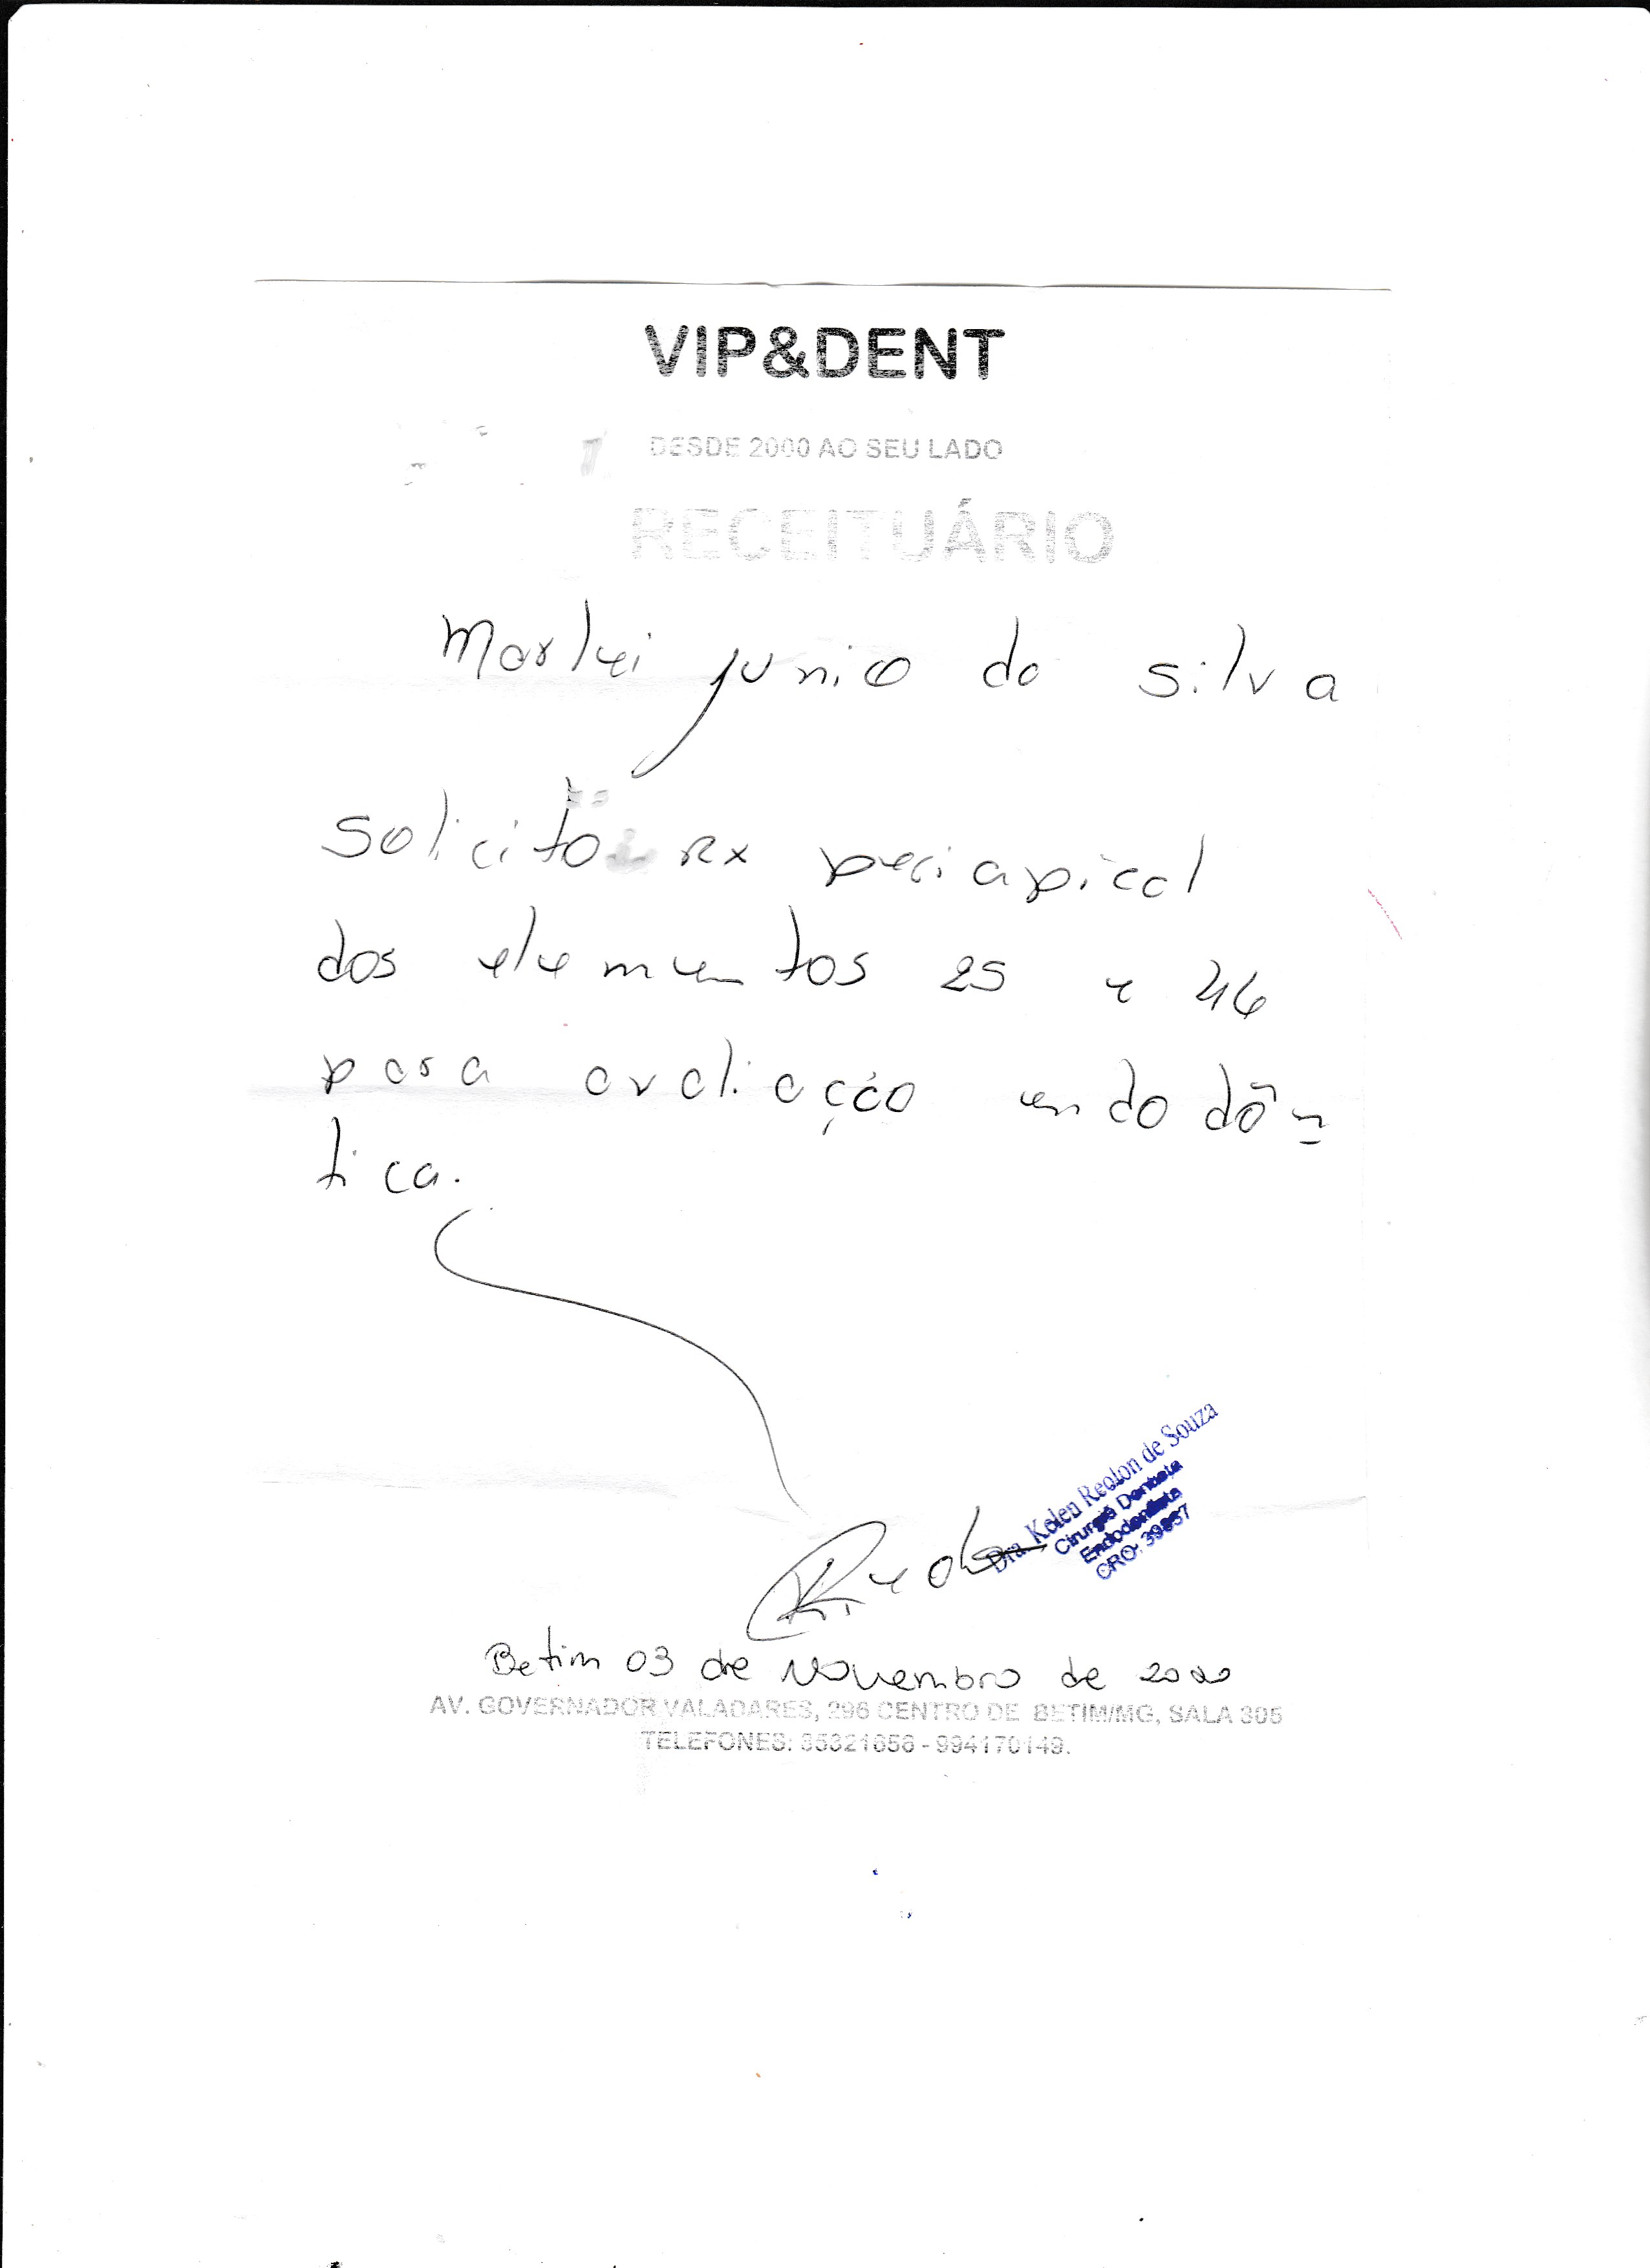 VIP&DENT
DESDE 2000 AO SEU LADO
RECEITUÁRIO
Marlei junio da silva
Solicito Rx periapical
dos elementos 25 e 46
para avaliação endodôn
tica.
Dra. Kelen Reolon de Souza
Cirurgiã Dentista
Endodontista
CRO: 39857
Betim 03 de Novembro de 2020
AV. GOVERNADOR VALADARES, 296 CENTRO DE BETIM/MG, SALA 305
TELEFONES: 35321656 - 994170149.